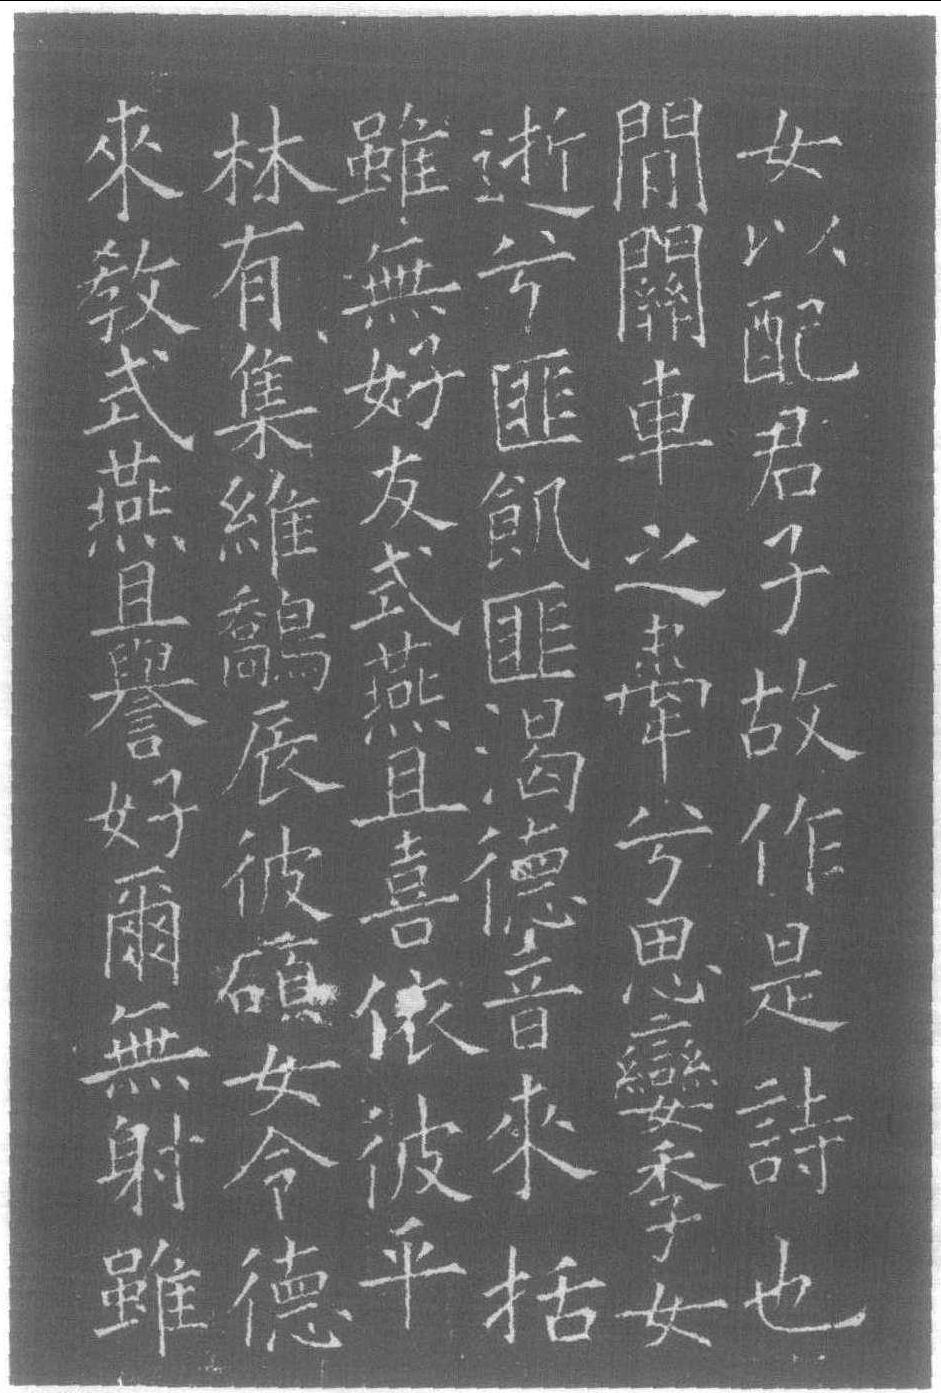 女以配君子故作是詩也
閒關車之舝兮思孌季女
逝兮匪飢匪渴德音來括
雖無好友式燕且喜依彼平
林有集維鷮辰彼碩女令德
來教式燕且譽好爾無射雖